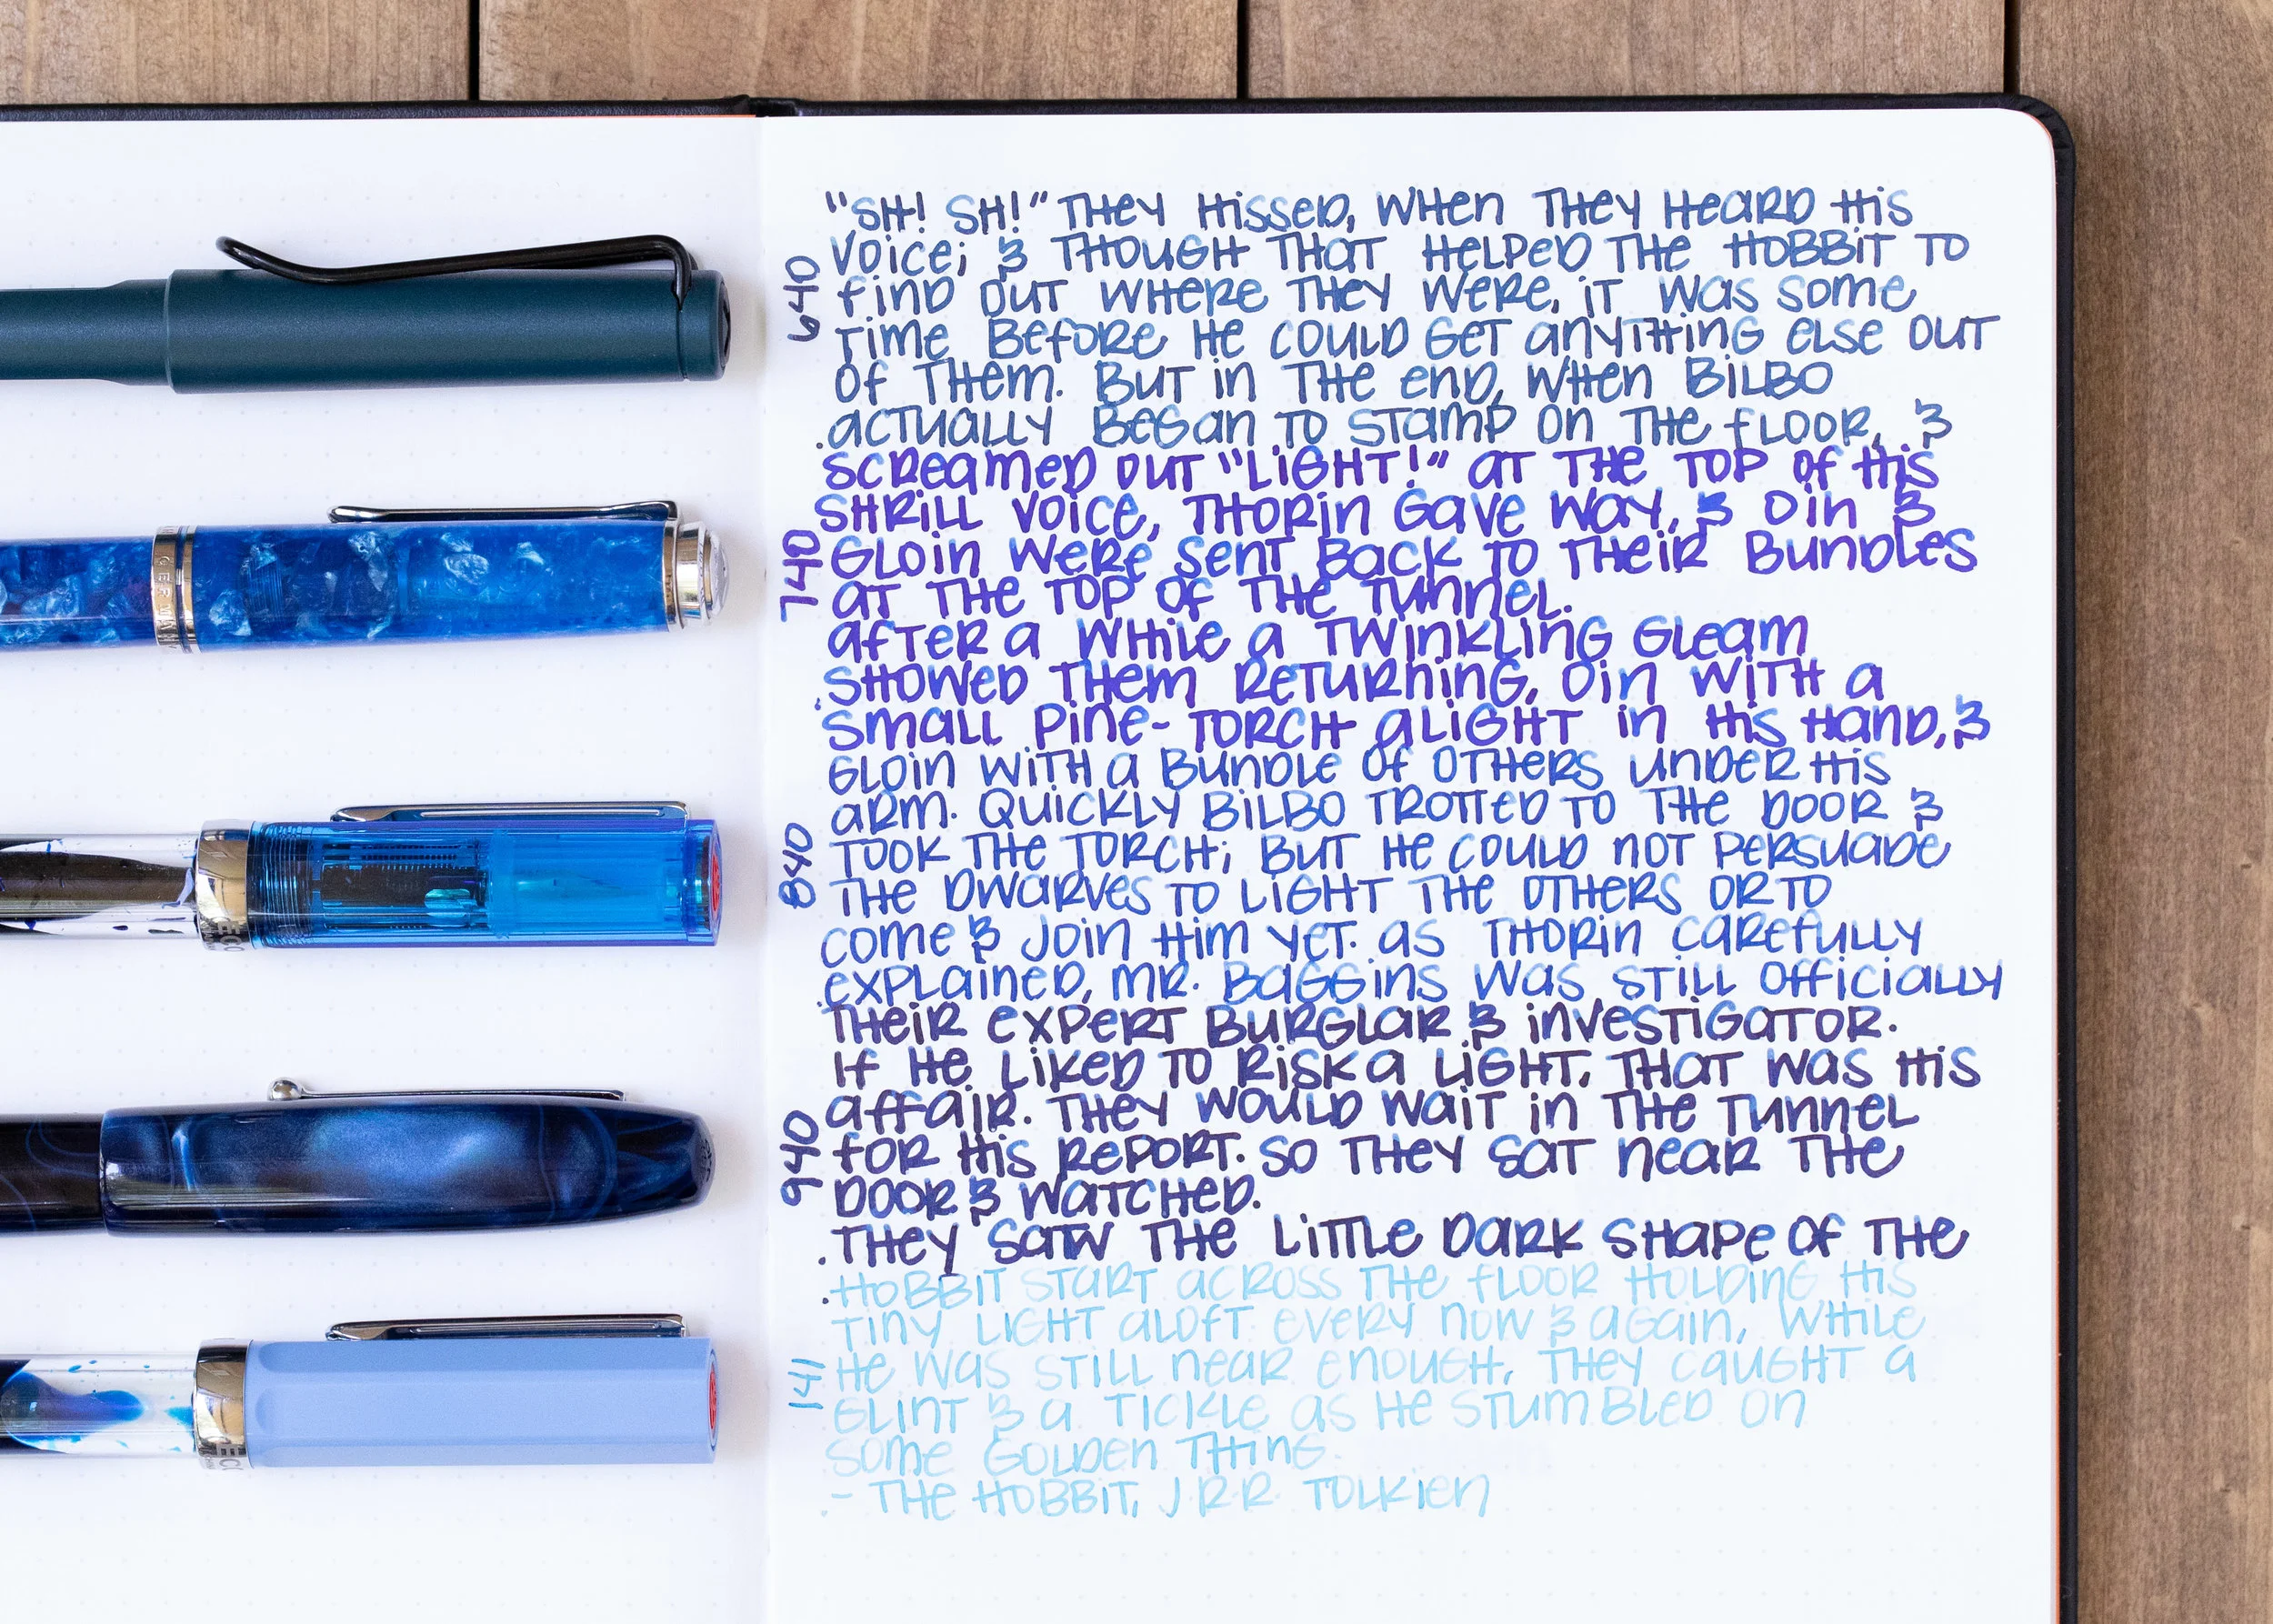 "SH! SH!" THEY HISSED, WHEN THEY HEARD HIS
VOICE; & THOUGH THAT HELPED THE HOBBIT TO
FIND OUT WHERE THEY WERE, IT WAS SOME
TIME BEFORE HE COULD GET ANYTHING ELSE OUT
OF THEM. BUT IN THE END, WHEN BILBO
ACTUALLY BEGAN TO STAMP ON THE FLOOR, &
SCREAMED OUT "LIGHT!" AT THE TOP OF HIS
SHRILL VOICE, THORIN GAVE WAY, & OIN &
GLOIN WERE SENT BACK TO THEIR BUNDLES
AT THE TOP OF THE TUNNEL.
AFTER A WHILE A TWINKLING GLEAM
SHOWED THEM RETURNING, OIN WITH A
SMALL PINE-TORCH ALIGHT IN HIS HAND, &
GLOIN WITH A BUNDLE OF OTHERS UNDER HIS
ARM. QUICKLY BILBO TROTTED TO THE DOOR &
TOOK THE TORCH; BUT HE COULD NOT PERSUADE
THE DWARVES TO LIGHT THE OTHERS OR TO
COME & JOIN HIM YET. AS THORIN CAREFULLY
EXPLAINED, MR. BAGGINS WAS STILL OFFICIALLY
THEIR EXPERT BURGLAR & INVESTIGATOR.
IF HE LIKED TO RISK A LIGHT, THAT WAS HIS
AFFAIR. THEY WOULD WAIT IN THE TUNNEL
FOR HIS REPORT. SO THEY SAT NEAR THE
DOOR & WATCHED.
THEY SAW THE LITTLE DARK SHAPE OF THE
HOBBIT START ACROSS THE FLOOR HOLDING HIS
TINY LIGHT ALOFT. EVERY NOW & AGAIN, WHILE
HE WAS STILL NEAR ENOUGH, THEY CAUGHT A
GLINT & A TICKLE AS HE STUMBLED ON
SOME GOLDEN THING.
- THE HOBBIT, J.R.R. TOLKIEN
640
740
840
940
141